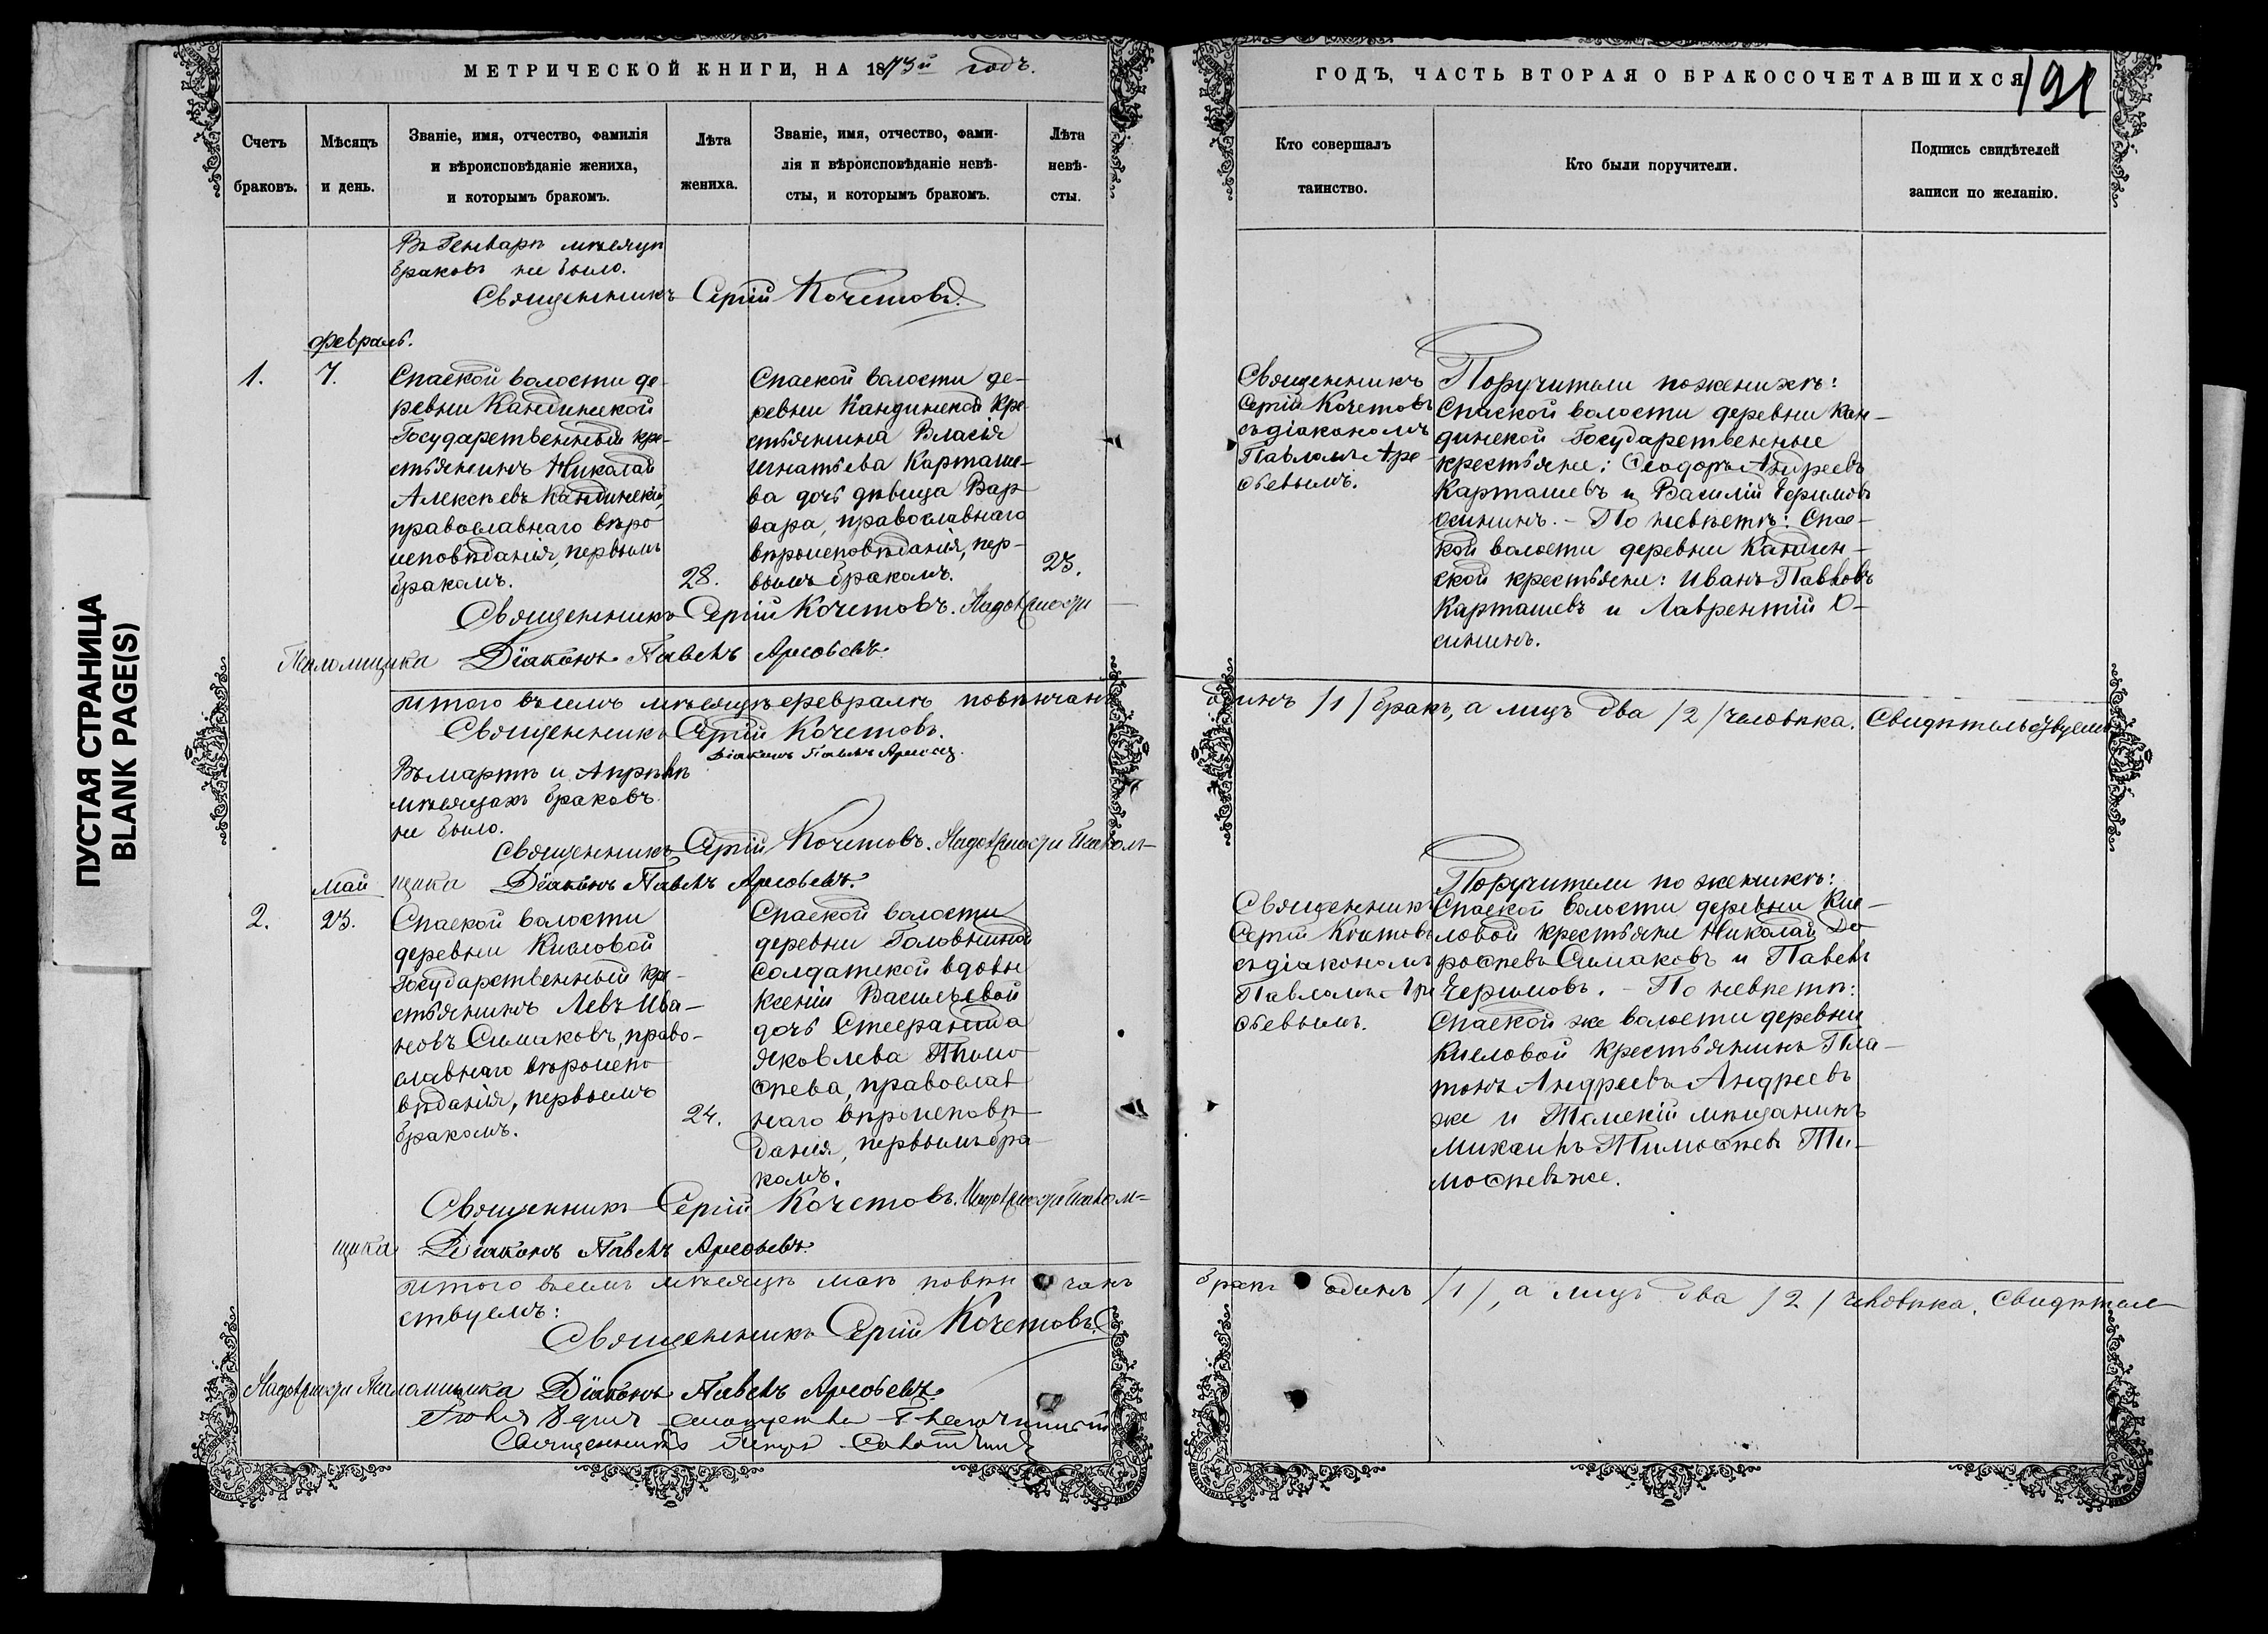 ПУСТАЯ СТРАНИЦА
BLANK PAGE(S)
МЕТРИЧЕСКОЙ КНИГИ, НА 1873й годъ.
Счетъ браковъ.
Мѣсяцъ и день.
Званіе, имя, отчество, фамилія
и вѣроисповѣданіе жениха,
и которымъ бракомъ.
Лѣта
жениха.
Званіе, имя, отчество, фами-
лія и вѣроисповѣданіе невѣ-
сты, и которымъ бракомъ.
Лѣта
невѣ-
сты.
Въ Генварѣ мѣсяцѣ
браковъ не было.
Священникъ Сергій Кочетовъ.
Февраль.
1.
7.
Спаской волости де-
ревни Кандинской
Государственный кре-
стьянинъ Николай
Алексѣевъ Кандинскій,
православнаго вѣро
исповѣданія, первымъ
бракомъ.
28.
Спаской волости де-
ревни Кандинской кре-
стьянина Власія
Игнатьева Карташе-
ва дочь дѣвица Вар
вара, православнаго
вѣроисповѣданія, пер-
вымъ бракомъ.
23.
Священникъ Сергій Кочетовъ.
Псаломщика Діаконъ Павелъ Арефьевъ.
Итого въ семъ мѣсяцѣ февралѣ повѣнчанъ
Священникъ Сергій Кочетовъ.
Діаконъ Павелъ
Въ мартѣ и Апрѣлѣ
мѣсяцахъ браковъ
не было.
Священникъ Сергій Кочетовъ. Псалом-
щика Діаконъ Павелъ Арефьевъ.
Май
2.
23.
Спаской волости
деревни Кисловой
Государственный кре-
стьянинъ Левъ Ива-
новъ Симаковъ, право-
славнаго вѣроиспо
вѣданія, первымъ
бракомъ.
24.
Спаской волости
деревни Головниной
солдатской вдовы
Ксеніи Васильевой
дочь Стефанида
Яковлева Тимо
ѳѣева, православ
наго вѣроисповѣ
данія, первымъ бра-
комъ.
Священникъ Сергій Кочетовъ. Псалом-
щика Діаконъ Павелъ Арефьевъ.
Итого въ семъ мѣсяцѣ маѣ повѣнчанъ
ствуемъ:
Священникъ Сергій Кочетовъ.
Псаломщика Діаконъ Павелъ Арефьевъ.
Благочинный
Священникъ Петръ
ГОДЪ, ЧАСТЬ ВТОРАЯ О БРАКОСОЧЕТАВШИХСЯ
191
Кто совершалъ
таинство.
Кто были поручители.
Подпись свидѣтелей
записи по желанію.
Священникъ
Сергій Кочетовъ
съ діакономъ
Павломъ Аре-
фьевымъ.
Поручители по женихѣ:
Спаской волости деревни Кан-
динской Государственные
крестьяне: Ѳеодоръ Андреевъ
Карташевъ и Василій Ефимовъ
Осининъ. – По невѣстѣ: Спас-
кой волости деревни Кандин-
ской крестьяне: Иванъ Павловъ
Карташевъ и Лаврентій О-
сининъ.
одинъ /1/ бракъ, а лицъ два /2/ человѣка. Свидѣтельствуемъ
Священникъ
Сергій Кочетовъ
съ діакономъ
Павломъ Аре
фьевымъ.
Поручители по женихѣ:
Спаской волости деревни Кис-
ловой крестьяне Николай До
роѳѣевъ Симаковъ и Павелъ
Ефимовъ. – По невѣстѣ:
Спаской же волости деревни
Кисловой крестьянинъ Пла-
тонъ Андреевъ Андреевъ
же и Томскій мѣщанинъ
Михаилъ Тимоѳѣевъ Ти-
моѳѣевъ же.
бракъ одинъ /1/, а лицъ два /2/ человѣка. Свидѣтель